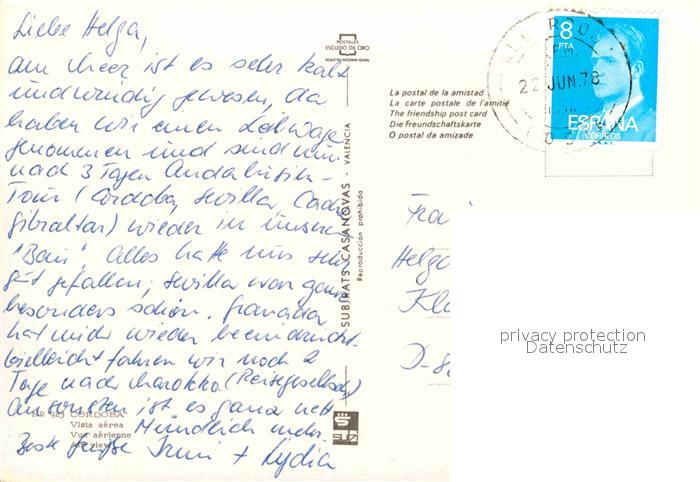 Liebe Helga,
am Meer ist es sehr kalt
und windig gewesen, da
haben wir einen
genommen und sind nun
nach 3 Tagen Andalusien-
Tour (Cordoba, Sevilla, Cadiz
Gibraltar) wieder in unserem
"Bau" Alles hatte uns sehr
gut gefallen, Sevilla war ganz
besonders schön. Granada
hat mich wieder beeindruckt.
Vielleicht fahren wir noch 2
Tage nach Marokko (Reisegesellsch.)
Ansonsten ist es ganz nett
Mündlich mehr.
Beste Grüße Irmi + Lydia
Nº 923 CORDOBA
Vista aérea
Vue aérienne
POSTALES
ESCUDO DE ORO
REGISTRO INTERNACIONAL
SUBIRATS CASANOVAS - VALENCIA
Reproducción prohibida
La postal de la amistad
La carte postale de l'amitié
The friendship post card
Die Freundschaftskarte
O postal da amizade
8
PTA
ESPAÑA
CORREOS
22 JUN. 78
Helga
D-
privacy protection
Datenschutz